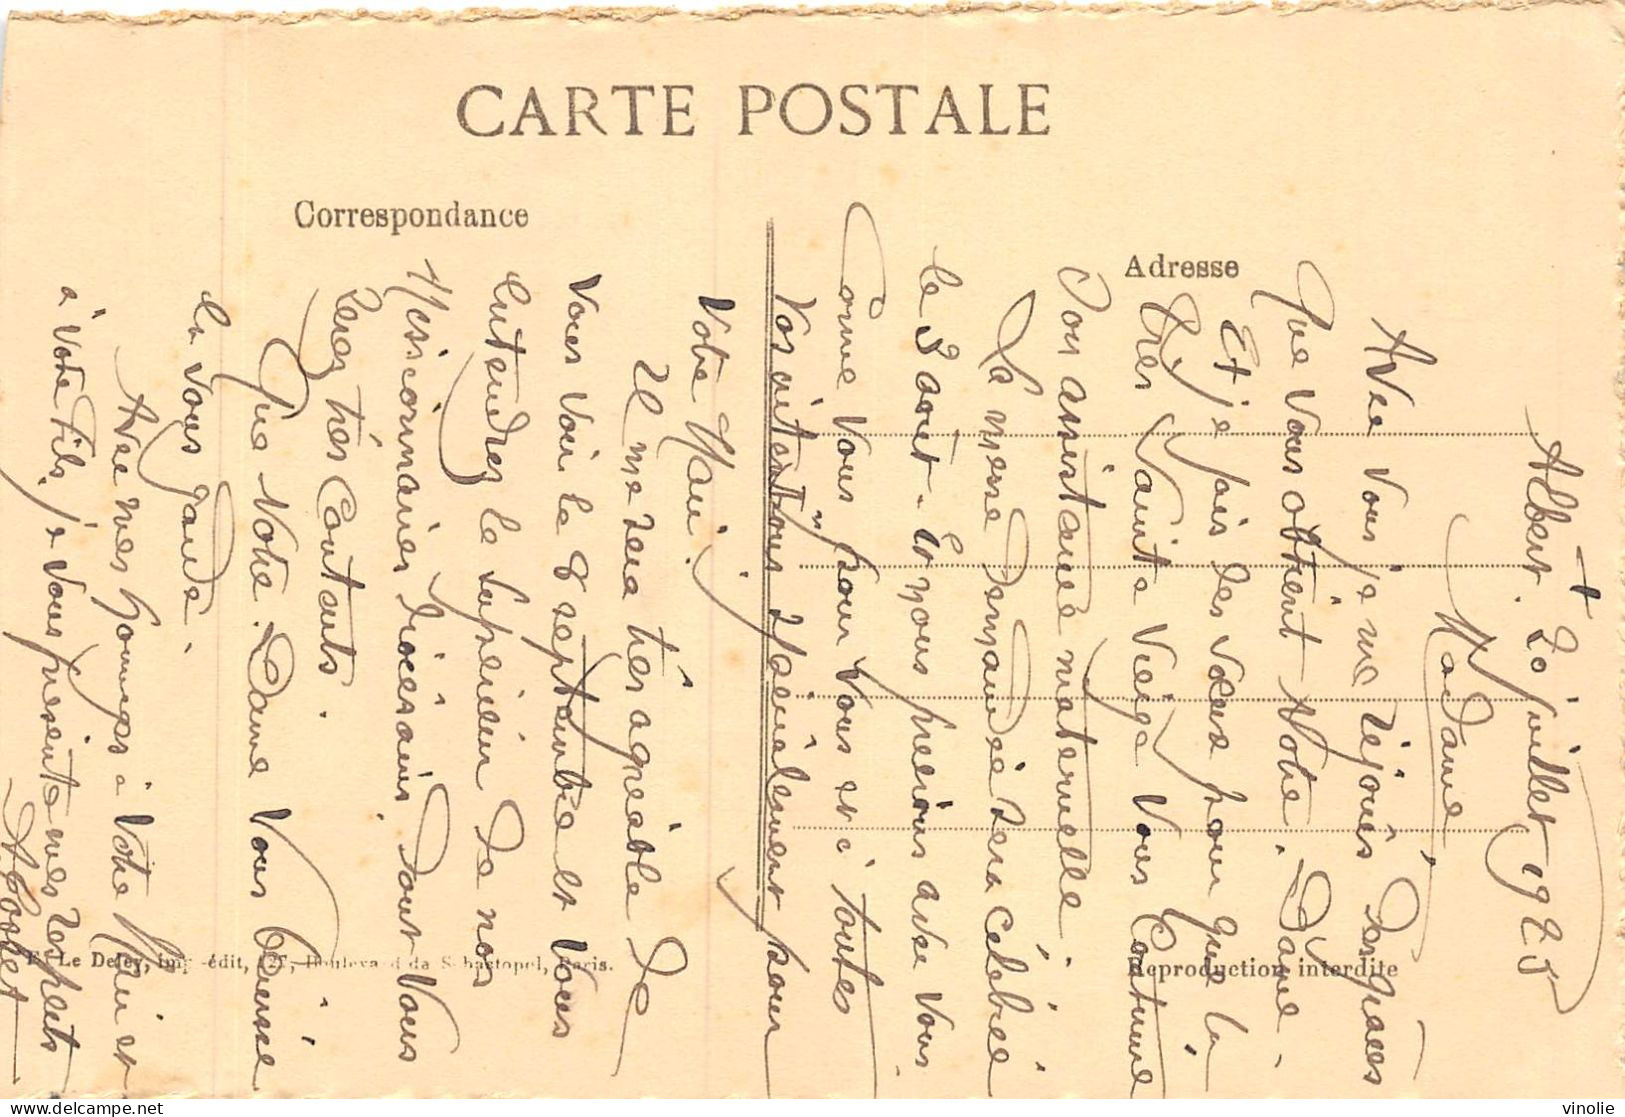 CARTE POSTALE
Correspondance
Adresse
+
Albert. 20 juillet 1925
Madame,
Avec vous je me réjouis des grâces
que vous obtient Notre. Dame.
Et je fais des vœux pour que la
Très Sainte Vierge vous continue
son assistance maternelle.
La messe demandée sera célébrée
le 3 août. Et nous prierons avec vous
comme vous, pour vous et à toutes
vos intentions spécialement pour
votre Mari.
Il me sera très agréable de
vous voir le 8 septembre et vous
entendrez le supérieur de nos
Missionnaires diocésains dont vous
serez très contents.
Que Notre. Dame vous bénisse
et vous garde.
Avec mes hommages à votre Mari et
à votre fils, je vous présente mes respects
E. Le Deley, imp.-édit, 127, Boulevard de Sébastopol, Paris.
Reproduction interdite
vinolie